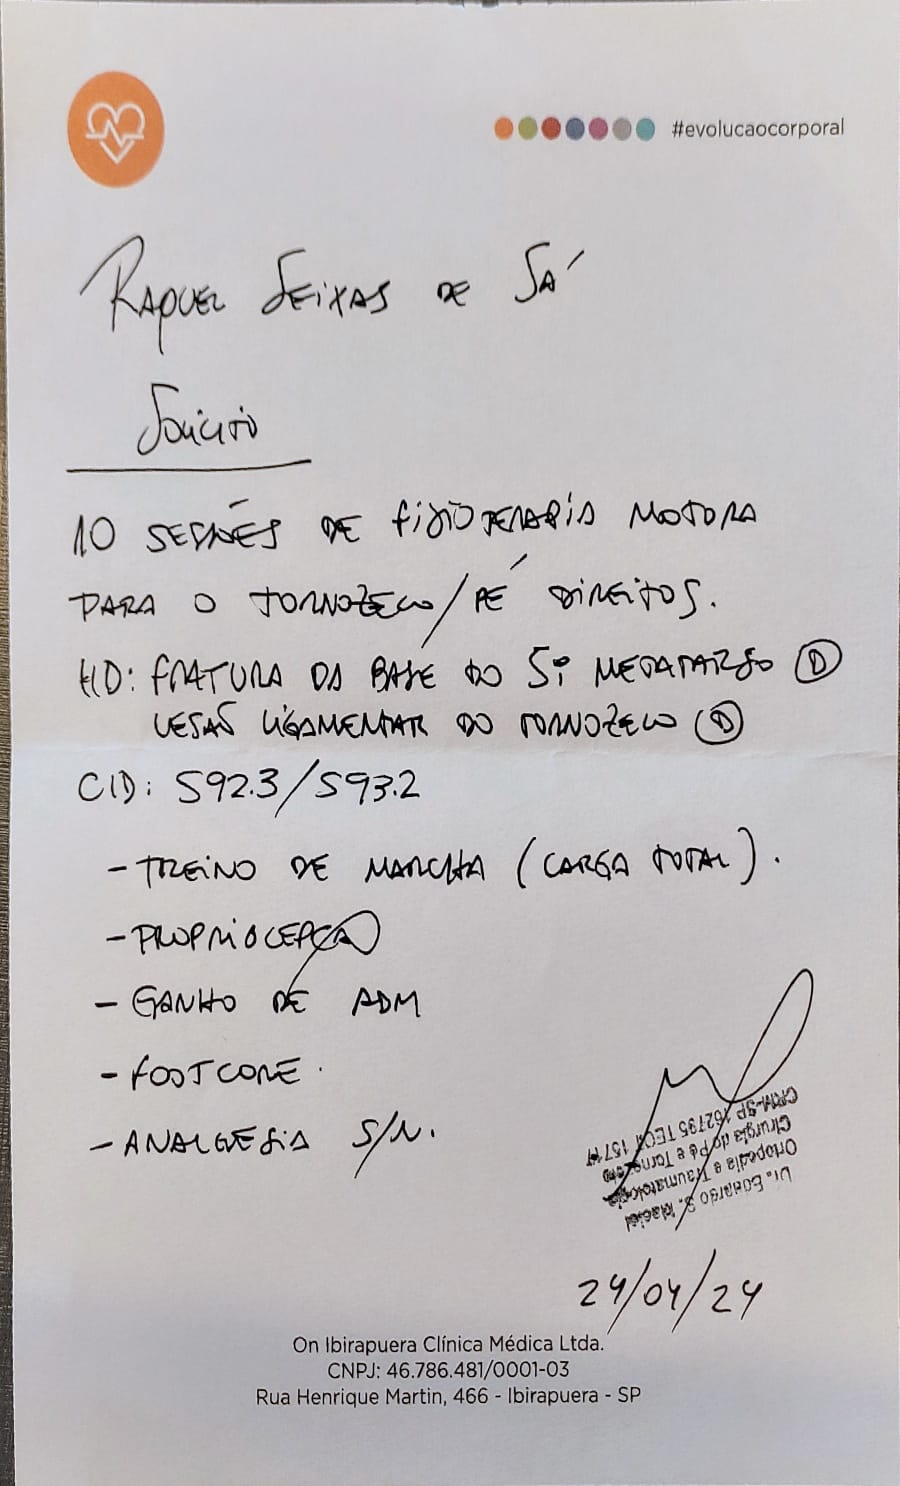 #evolucaocorporal
Raquel Seixas de Sá
Solicito
10 sessões de fisioterapia motora
para o tornozelo/pé direitos.
HD: fratura da base do 5º metatarso D
lesão ligamentar do tornozelo D
CID: S92.3/S93.2
- Treino de marcha (carga total).
- Propriocepção
- Ganho de ADM
- Footcore
- Analgesia S/N.
Dr. Eduardo S. Maciel
Ortopedia e Traumatologia
Cirurgia do Pé e Tornozelo
CRM-SP 162795 TEOT
24/04/24
On Ibirapuera Clínica Médica Ltda.
CNPJ: 46.786.481/0001-03
Rua Henrique Martin, 466 - Ibirapuera - SP